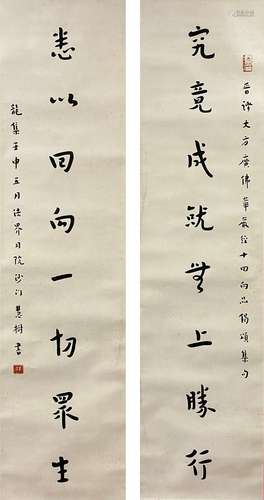 晋譯大方廣佛華嚴经十回向品偈頌集句
究竟成就無上勝行
悉以回向一切眾生
龍集壬申五月法界月院沙门慧樹書